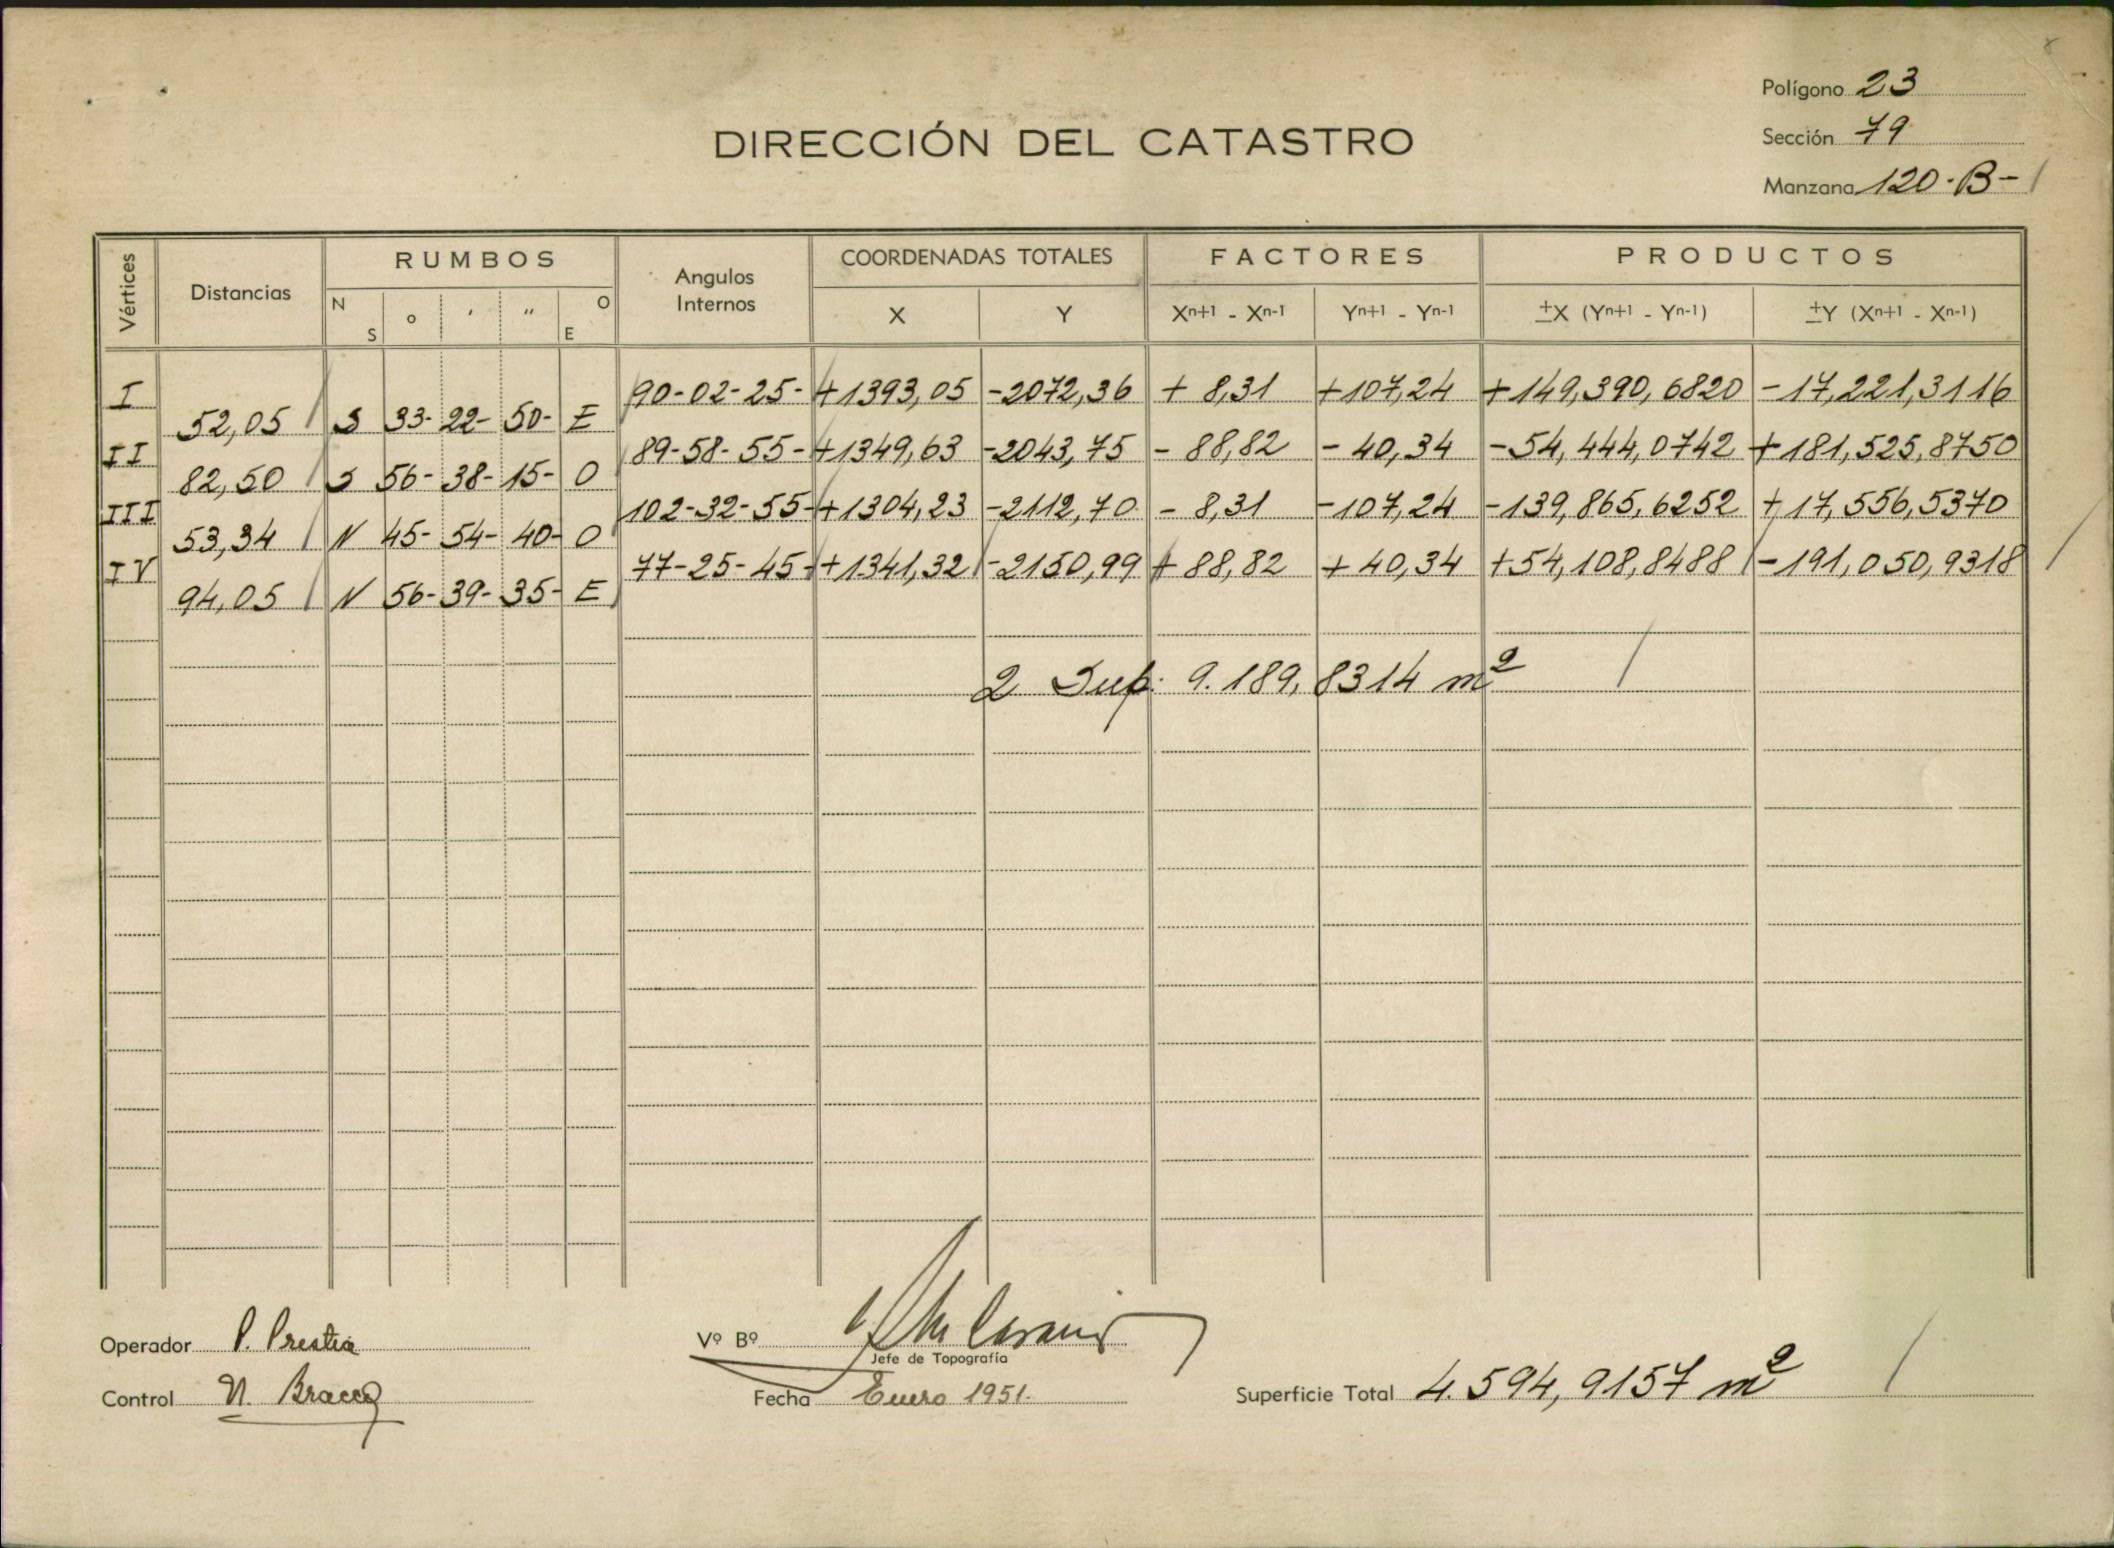 Polígono 23
DIRECCIÓN DEL CATASTRO
Sección 79
Manzana 120-B-
Vértices Distancias RUMBOS Angulos Internos COORDENADAS TOTALES FACTORES PRODUCTOS
N S ° ′ ″ O E X Y Xⁿ⁺¹ - Xⁿ⁻¹ Yⁿ⁺¹ - Yⁿ⁻¹ ±X (Yⁿ⁺¹ - Yⁿ⁻¹) ±Y (Xⁿ⁺¹ - Xⁿ⁻¹)
I 90-02-25- +1393,05 -2072,36 + 8,31 +107,24 +149,390,6820 -17,221,3116
52,05 S 33- 22- 50- E
II 89-58-55- +1349,63 -2043,75 - 88,82 - 40,34 -54,444,0742 +181,525,8750
82,50 S 56- 38- 15- O
III 102-32-55- +1304,23 -2112,70 - 8,31 -107,24 -139,865,6252 +17,556,5370
53,34 N 45- 54- 40- O
IV 77-25-45- +1341,32 -2150,99 + 88,82 + 40,34 +54,108,8488 -191,050,9318
94,05 N 56- 39- 35- E
2 Sup: 9.189,8314 m²
Operador P. Prestia
Vº Bº
Jefe de Topografía
Control N. Bracco
Fecha Enero 1951.
Superficie Total 4.594,9157 m²